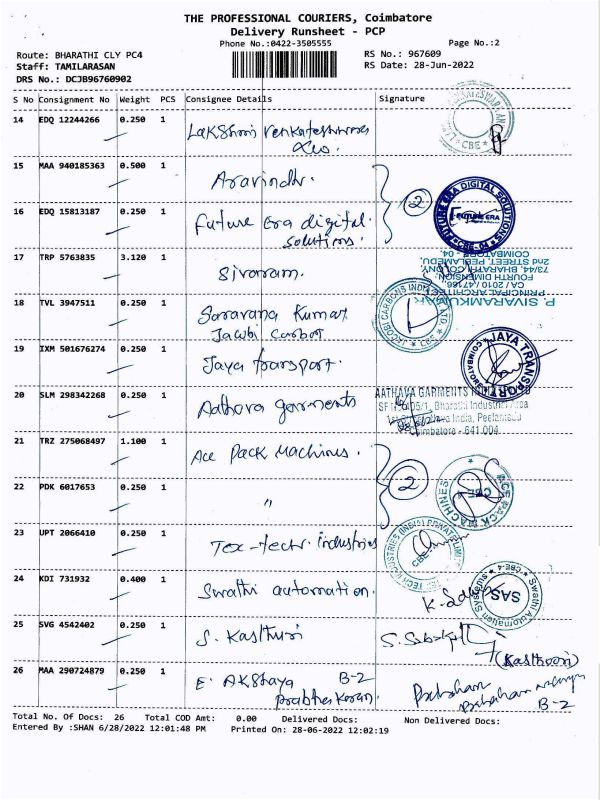 THE PROFESSIONAL COURIERS, Coimbatore
Delivery Runsheet - PCP
Phone No.:0422-3505555
Page No.:2
Route: BHARATHI CLY PC4
RS No.: 967609
Staff: TAMILARASAN
RS Date: 28-Jun-2022
DRS No.: DCJB96760902
S No Consignment No Weight PCS Consignee Details Signature
14 EDQ 12244266 0.250 1 Lakshmi Venkateshwara
CBE
15 MAA 940185363 0.500 1 Aravindh.
2
16 EDQ 15813187 0.250 1 Future Era digital.
solutions.
FUTURE ERA DIGITAL SOLUTIONS
FUTURE ERA
CBE-04
17 TRP 5763835 3.120 1 Sivaram.
P. SIVARAMKUMAR
PRINCIPAL ARCHITECT
CA / 2010 / 47166
FOURTH DIMENSION
73/44, BHARATHI COLONY,
2nd STREET, PEELAMEDU,
COIMBATORE - 04.
18 TVL 3947511 0.250 1 Saravana Kumar
Jacobi Carbot
JACOBI CARBONS INDIA LTD
CBE
19 IXM 501676274 0.250 1 Jaya transport.
JAYA TRANSPORT
COIMBATORE
20 SLM 298342268 0.250 1 Aathava garments
AATHAVA GARMENTS
Bharathi Industrial Area
India, Peelamedu
Coimbatore - 641 004.
21 TRZ 275068497 1.100 1 Ace Pack Machines.
2
22 PDK 6017653 0.250 1 "
ACE PACK MACHINES
CBE
23 UPT 2066410 0.250 1 Tex-tech industries
TEX TECH INDUSTRIES (INDIA) PRIVATE LIMITED
CBE
24 KDI 731932 0.400 1 Swathi automation.
Swathi Automation Systems
SAS
CBE-4
25 SVG 4542402 0.250 1 S. Kasthuri
(Kasthoori)
26 MAA 290724879 0.250 1 E. Akshaya B-2
Prabhakaran.
B-2
Total No. Of Docs: 26 Total COD Amt: 0.00 Delivered Docs: Non Delivered Docs:
Entered By :SHAN 6/28/2022 12:01:48 PM Printed On: 28-06-2022 12:02:19